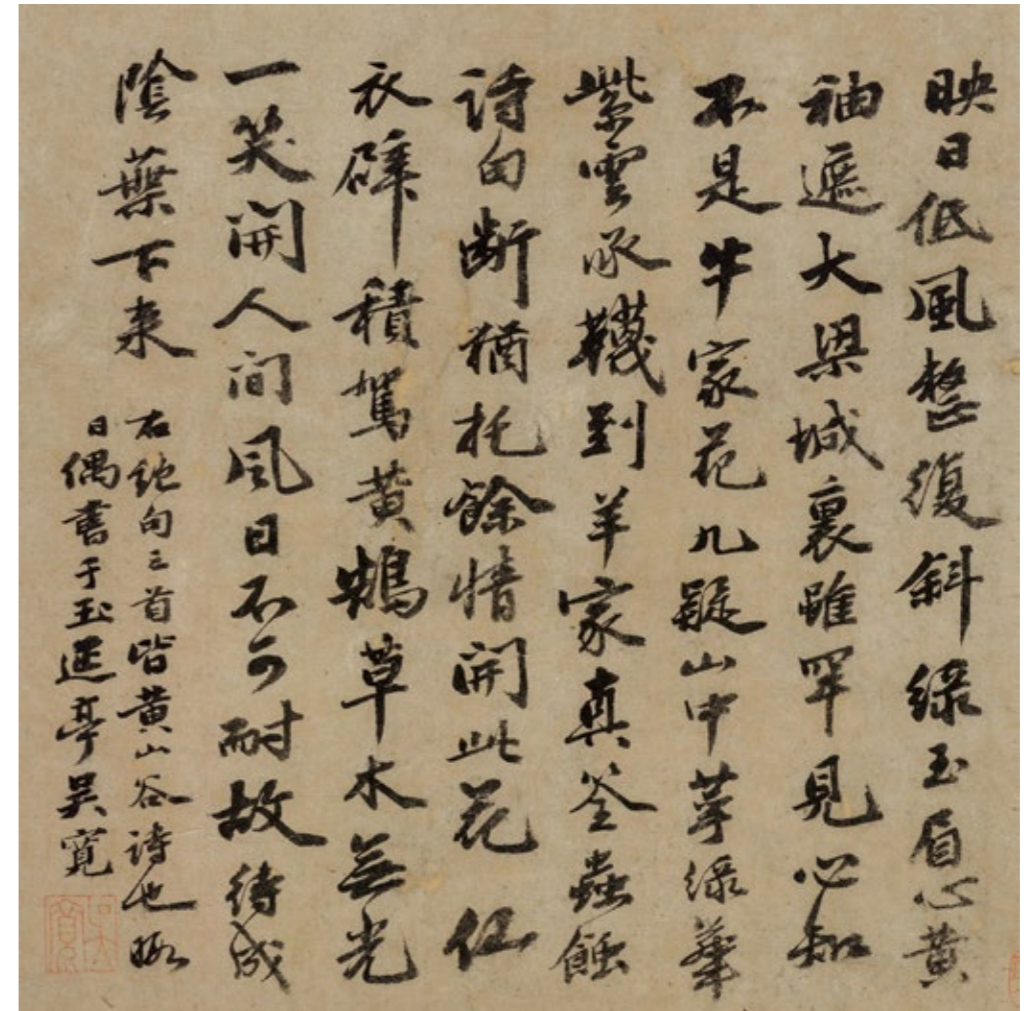 映日低風整復斜綠玉眉心黃
袖遮大梁城裏雖罕見心知
不是牛家花九疑山中萼綠華
紫雲承韈到羊家真荃蟲蝕
詩句斷猶托餘情開此花仙
衣襞積駕黃鵠草木無光
一笑開人間風日不可耐故待成
陰葉下來
右絕句三首皆黃山谷詩也暇
日偶書于玉延亭吳寬